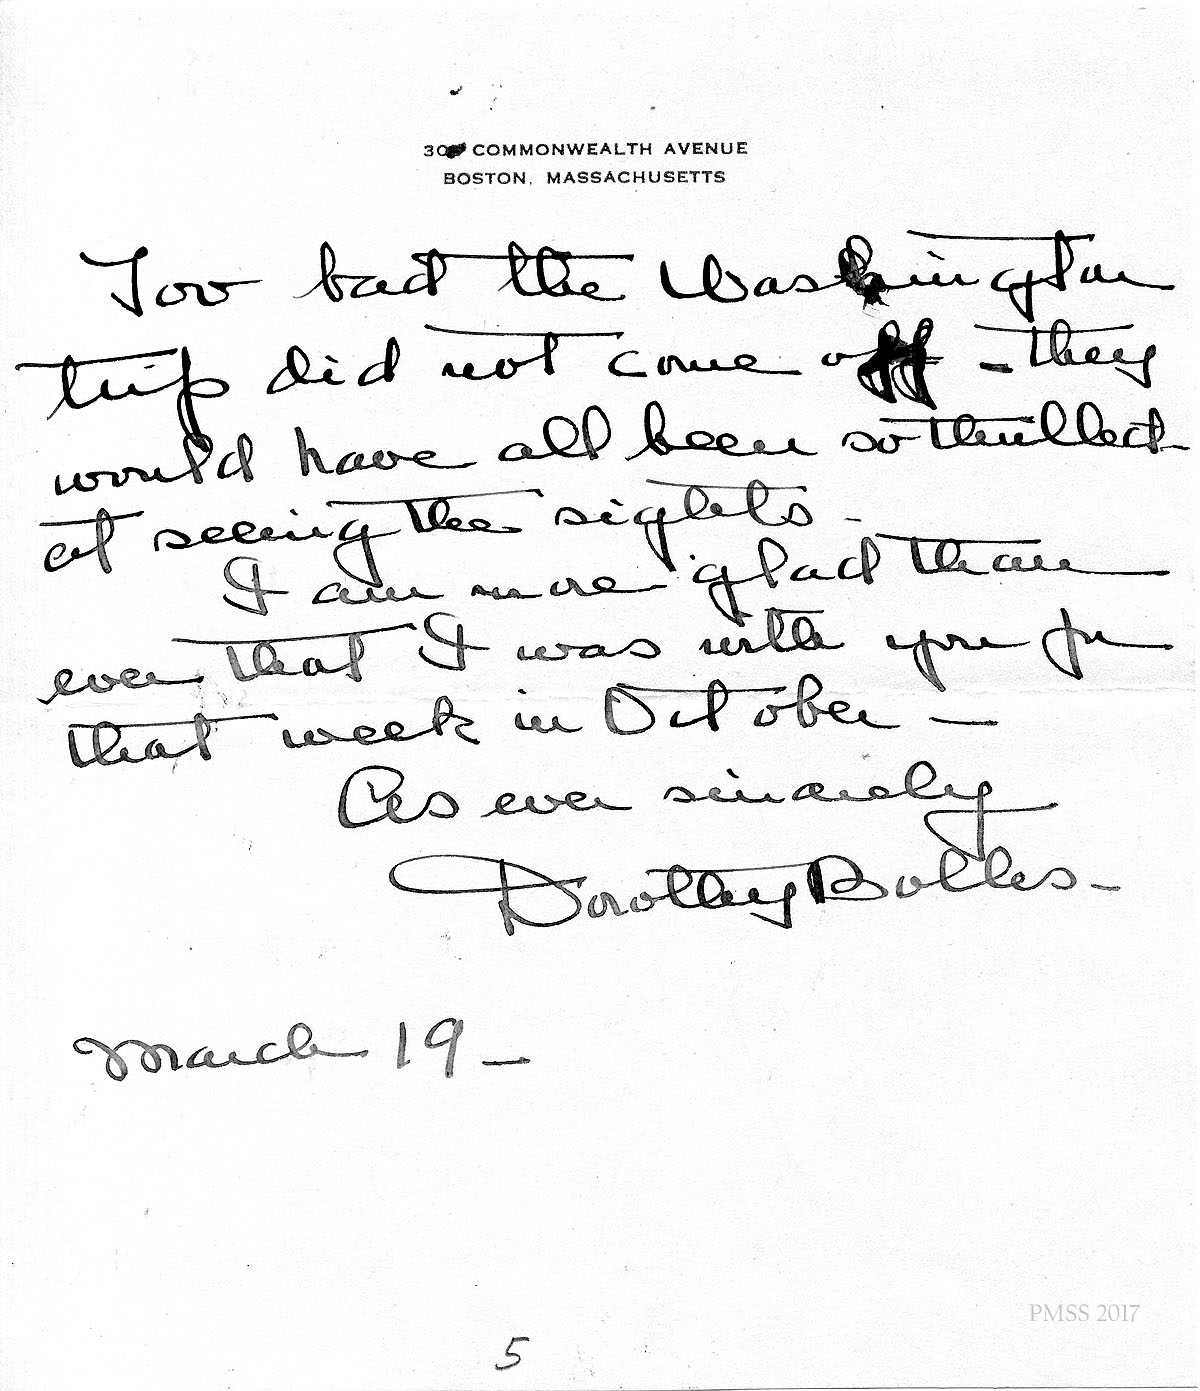 30 COMMONWEALTH AVENUE
BOSTON, MASSACHUSETTS
Too bad the Washington
trip did not come off - they
would have all been so thrilled
at seeing the sights.
I am more glad than
ever that I was with you for
that week in October —
As ever sincerely
Dorothy Bolles -
March 19 -
PMSS 2017
5